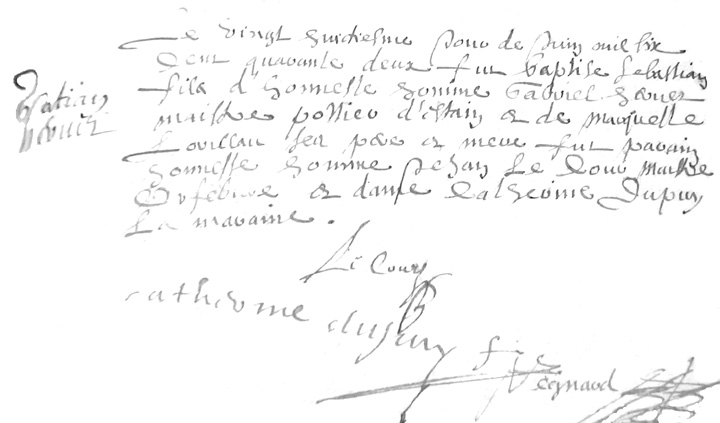 Le vingt huictiesme Jour de Juin mil six
Cent quarante deux fut baptise Sebastian
fils d'honneste homme Gabriel
maistre pottier d'estain et de
ses pere et mere fut parain
honneste homme Jehan Le Cour maistre
Orfebvre et dame Catherine Dupuy
La maraine .
Le Cour
catherinne dupuy
Regnaud